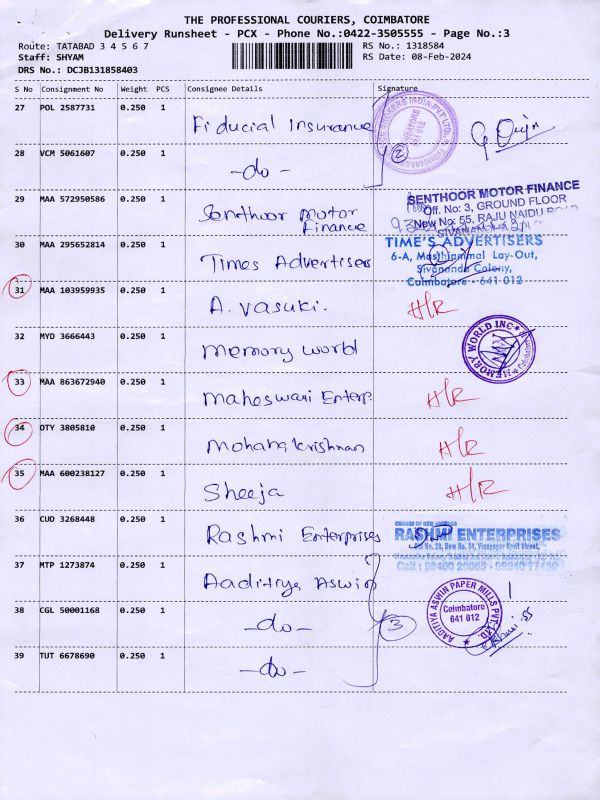 THE PROFESSIONAL COURIERS, COIMBATORE
Delivery Runsheet - PCX - Phone No.:0422-3505555 - Page No.:3
Route: TATABAD 3 4 5 6 7 RS No.: 1318584
Staff: SHYAM RS Date: 08-Feb-2024
DRS No.: DCJB131858403
S No Consignment No Weight PCS Consignee Details Signature
27 POL 2587731 0.250 1 Fiducial Insurance
28 VCM 5061607 0.250 1 -do- 2
29 MAA 572950586 0.250 1 Senthoor Motor Finance
SENTHOOR MOTOR FINANCE
Off. No: 3, GROUND FLOOR
New No: 55, RAJU NAIDU ROAD
30 MAA 295652814 0.250 1 Times Advertisers
TIME'S ADVERTISERS
6-A, Masthiammal Lay-Out,
Sivananda Colony,
Coimbatore - 641 012
31 MAA 103959935 0.250 1 A. Vasuki. H/R
32 MYD 3666443 0.250 1 Memory World
MEMORY WORLD INC
33 MAA 863672940 0.250 1 Maheswari Enterp. H/R
34 OTY 3805810 0.250 1 Mohana krishnan H/R
35 MAA 600238127 0.250 1 Sheeja H/R
36 CUD 3268448 0.250 1 Rashmi Enterprises
CHANGE OF NEW ADDRESS
RASHMI ENTERPRISES
37 MTP 1273874 0.250 1 Aaditiya Aswin
38 CGL 50001168 0.250 1 -do- 3
AADITIYA ASWIN PAPER MILLS PVT. LTD.
Coimbatore
641 012
39 TUT 6678690 0.250 1 -do-